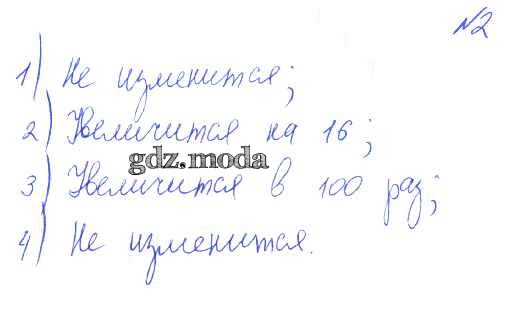 №2
1) Не изменится;
2) Увеличится на 16;
gdz.moda
3) Увеличится в 100 раз;
4) Не изменится.